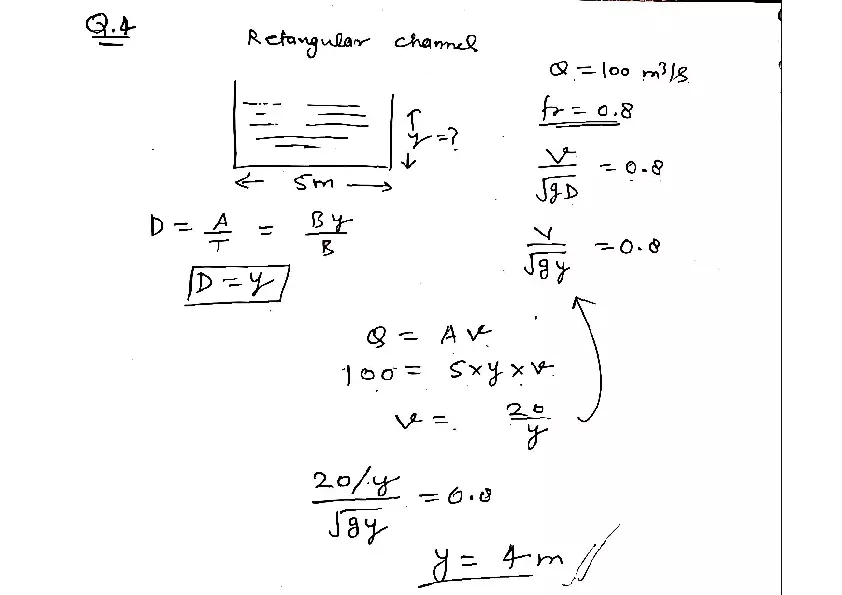 Q.4
Retangular channel
Q = 100 m³/s
fr = 0.8
y = ?
5m
V/√gD = 0.8
D = A/T = By/B
V/√gy = 0.8
D = y
Q = AV
100 = 5×y×V
V = 20/y
20/y/√gy = 0.8
y = 4m